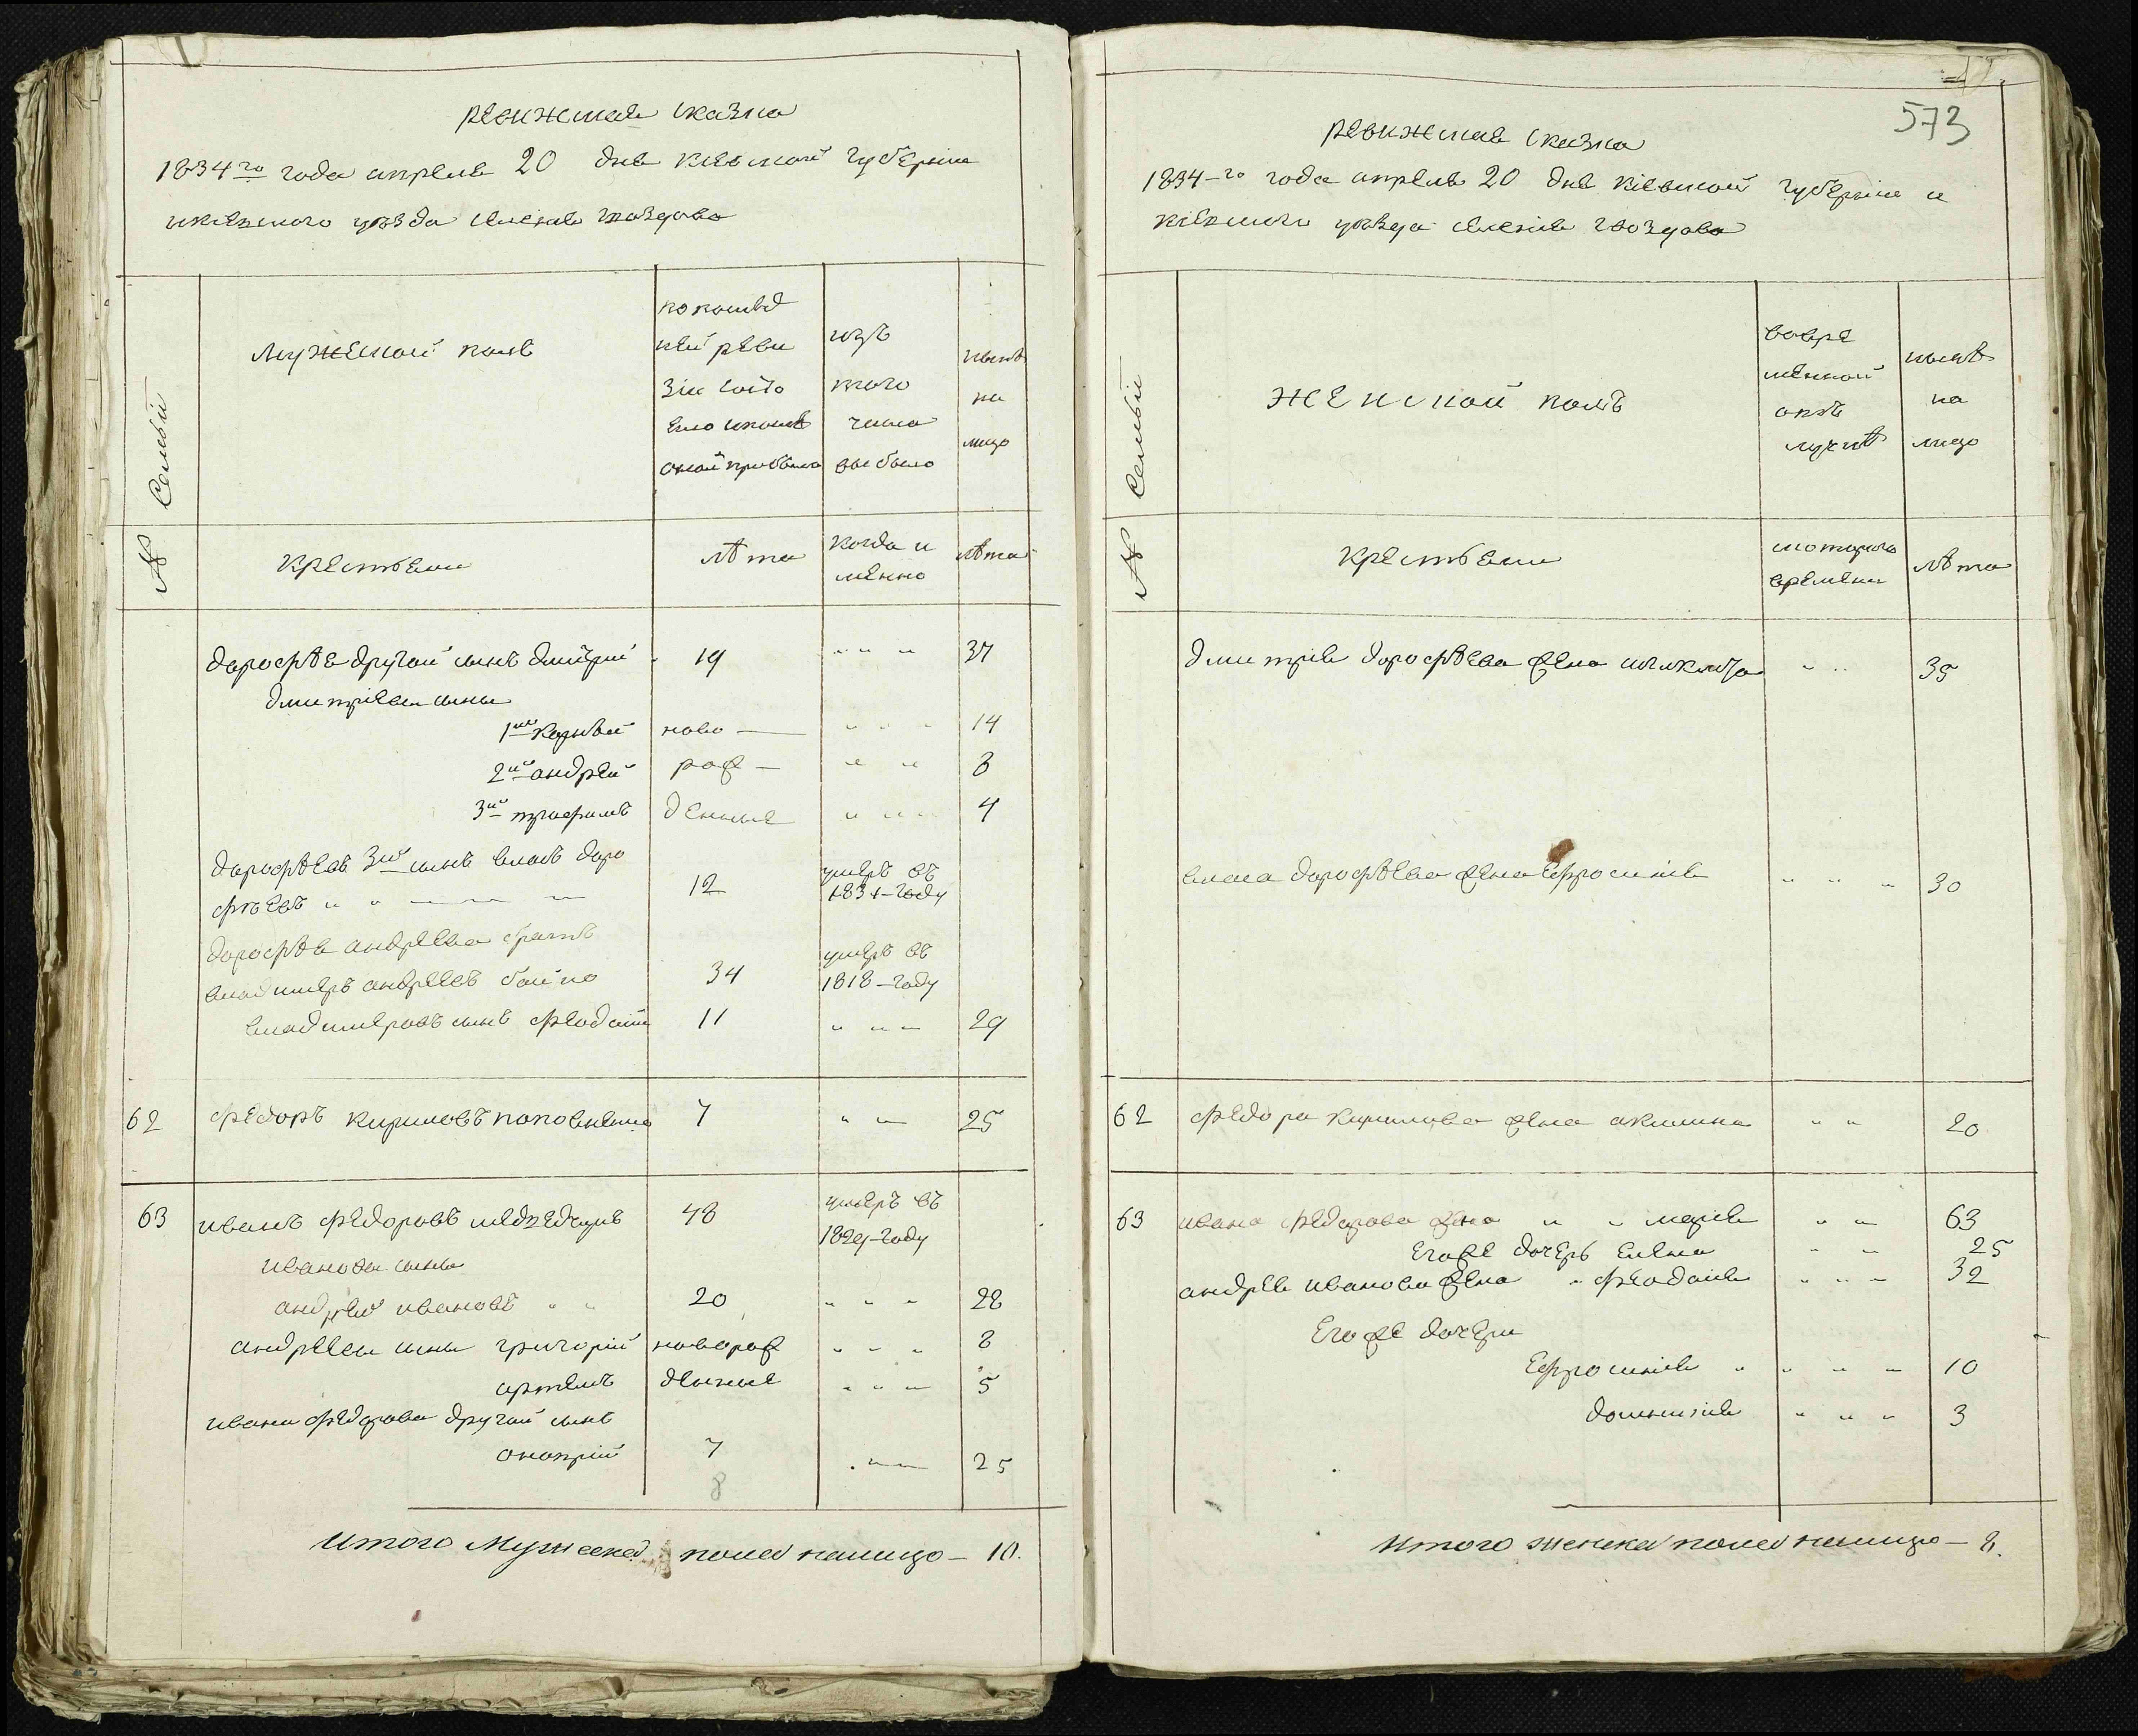 ревижская сказка
1834го года апреля 20 дня киевской губернии
и киевского уезда селения гвоздова
№ Семьи
Мужеской полъ
по послѣд
ней реви
зіи состо
яло и послѣ
оной прибыло
изъ
того
числа
выбыло
нынѣ
на
лицо
Крестьяни
лѣта
когда и
мѢнно
лѣта
дарофѣя другой сынъ дмитрий 19 37
дмитріевы сыны
1й Корнѣй ново — 14
2й андрей рож — 8
3й трофимъ денные 4
дарофѣевъ 3й сынъ власъ доро
фѣевъ 12 умеръ въ 1831-году
дорофѣя андреева братъ
владимеръ андреевъ бойко 34 умеръ въ 1818-году
владимеровъ сынъ феодосій 11 29
62 федоръ кириловъ 7 25
63 иванъ федоровъ 48 умеръ въ 1829-году
ивановы сыны
андрей ивановъ 20 28
андреевы сыны григорій новорож 8
артемъ денные 5
ивана федорова другой сынъ
онопрій 7 25
8
Итого Мужеска пола налицо — 10.
573
ревижская сказка
1834-го года апреля 20 дня кіевской губерніи и
кіевского уезда селенія гвоздова
№ Семьи
женской полъ
вовре
менной
отлучкѣ
нынѣ
на
лицо
Крестьяни
с которого
времени
лѣта
дмитрія дорофѣева жена 35
власа дорофѣева жена ефросинія 30
62 федора кирилова жена акилина 20
63 ивана федорова жена марія 63
егоже дочерь елена 25
андрея иванова жена феодосія 32
егоже дочери
ефросинія 10
домникія 3
Итого женска пола налицо — 8.